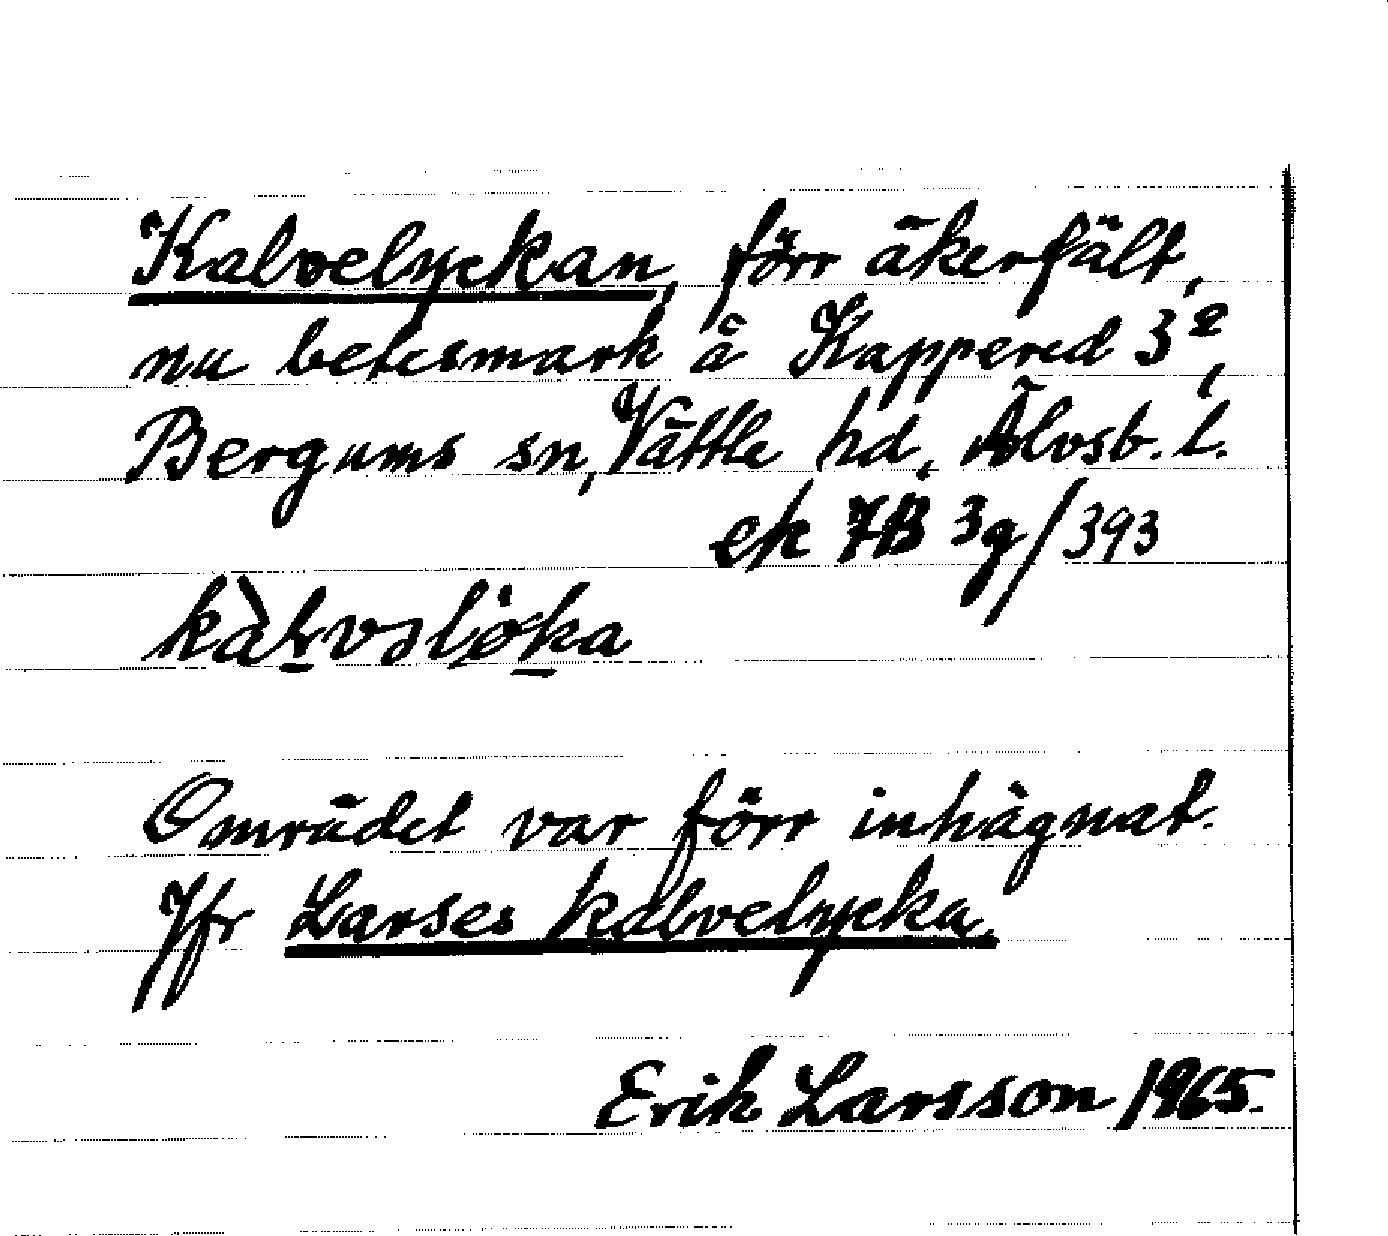 Kalvelyckan, förr åkerfält,
nu betesmark å Kappered 3²,
Bergums sn, Vättle hd, Älvsb. l.
ek 7B 3g/393
Området var förr inhägnat.
Jfr Larses kalvelycka.
Erik Larsson 1965.